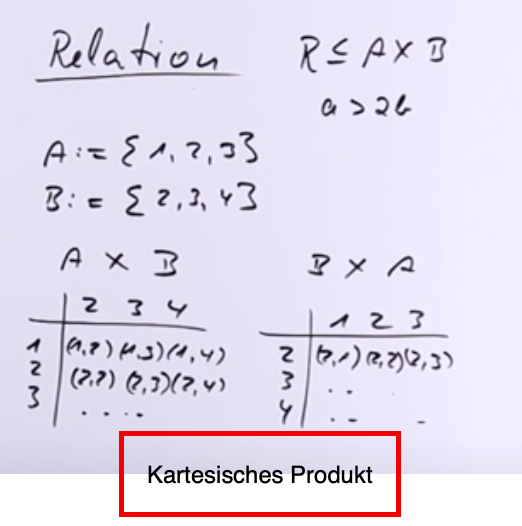 Relation R ⊆ A × B
a > 2b
A := { 1, 2, 3 }
B := { 2, 3, 4 }
A × B B × A
2 3 4 1 2 3
1 (1,2) (1,3) (1,4) 2 (2,1) (2,2) (2,3)
2 (2,2) (2,3) (2,4) 3 . .
3 . . . . 4 . . .
Kartesisches Produkt